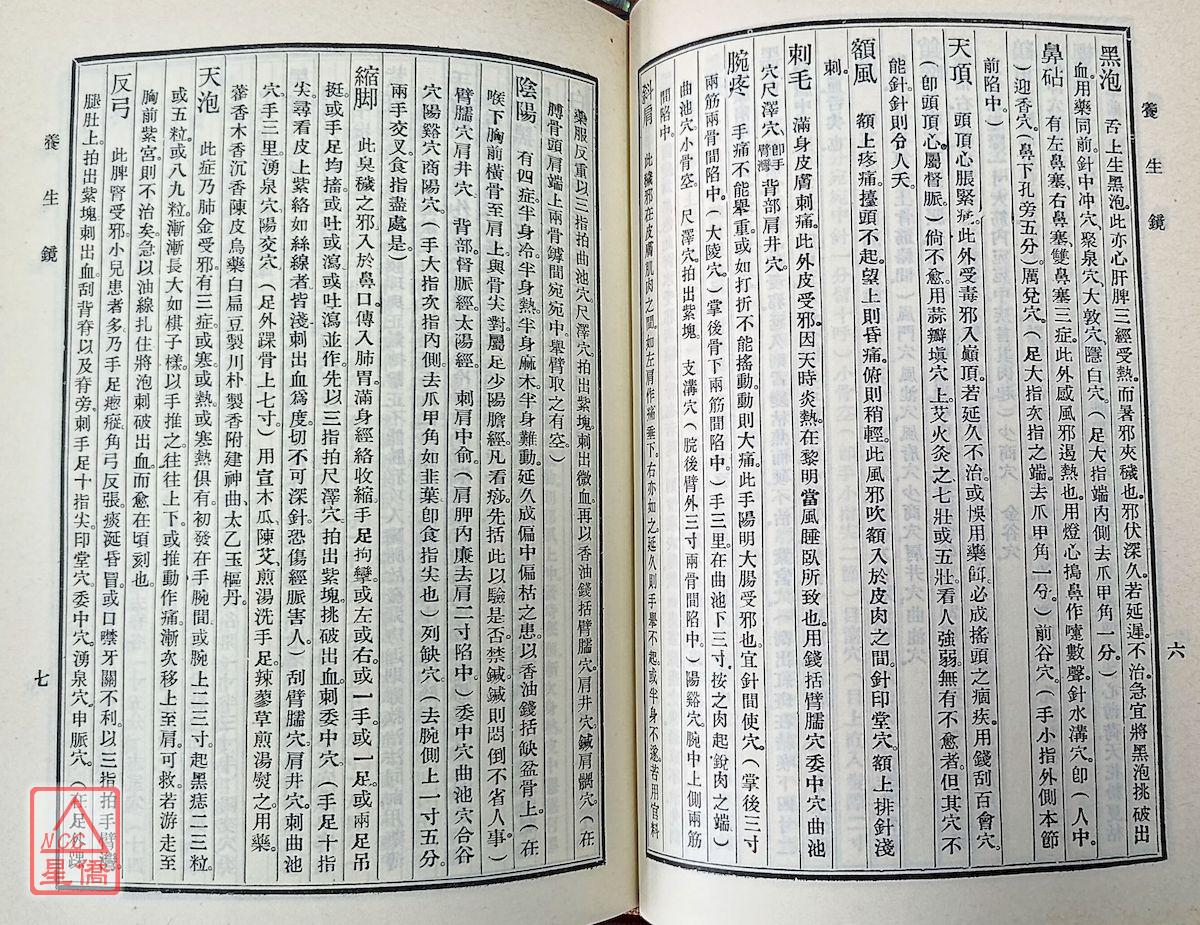 養生鏡
六
黑泡　舌上生黑泡。此亦心肝脾三經受熱。而暑邪夾穢也。邪伏深久。若延遲不治。急宜將黑泡挑破出
血。用藥同前。針中冲穴。聚泉穴。大敦穴。隱白穴。（足大指端內側去爪甲角一分）
鼻砧　有左鼻塞、右鼻塞、雙鼻塞三症。此外感風邪遏熱也。用燈心搗鼻作嚏數聲。針水溝穴。卽（人中。
）迎香穴（鼻下孔旁五分）。厲兌穴。（足大指次指之端去爪甲角一分。）前谷穴。（手小指外側本節
前陷中。）
天頂　頭頂心脹緊疼。此外受毒邪入巔頂。若延久不治。或悞用藥餌。必成搖頭之痼疾。用錢刮百會穴。
（卽頭頂心。屬督脈。）倘不愈。用蒜瓣塡穴上。艾火灸之七壯或五壯。看人強弱。無有不愈者。但其穴不
能針。針則令人夭。
額風　額上疼痛。擡頭不起。望上則昏痛。俯則稍輕。此風邪吹額。入於皮肉之間。針印堂穴。額上排針淺
刺。
刺毛　滿身皮膚刺痛。此外皮受邪。因天時炎熱。在黎明當風睡臥所致也。用錢括臂臑穴。委中穴。曲池
穴。尺澤穴。卽手臂灣背部肩井穴。
腕疼　手痛不能舉重。或如打折。不能搖動。動則大痛。此手陽明大腸受邪也。宜針間使穴。（掌後三寸
兩筋兩骨間陷中。（大陵穴。）掌後骨下兩筋間陷中。）手三里在曲池下三寸。按之肉起銳肉之端）
曲池穴。小骨空。　尺澤穴。拍出紫塊。　支溝穴。（脘後臂外三寸兩骨間陷中。）陽谿穴。腕中上側兩筋
間陷中。
斜肩　此穢邪在皮膚肌肉之間。如左肩作痛垂下。右亦如之。延久則手舉不起。或半身不遂。若用官料
藥服。反重。以三指拍曲池穴、尺澤穴。拍出紫塊。刺出微血。再以香油錢括臂臑穴。肩井穴。鍼肩髃穴。（在
膊骨頭肩端上兩骨罅間宛宛中。舉臂取之有空。）
陰陽　有四症。半身冷。半身熱。半身麻木。半身難動。延久成偏中偏枯之患。以香油錢括缺盆骨上。（在
喉下胸前橫骨至肩上。與骨尖對。屬足少陽膽經。凡看痧。先括此以驗是否。禁鍼。鍼則悶倒不省人事。）
臂臑穴。肩井穴。　背部督脈經。太陽經。　刺肩中俞。（肩胛內廉去肩二寸陷中。）委中穴。曲池穴。合谷
穴。陽谿穴。商陽穴。（手大指次指內側。去爪甲角如韭葉。卽食指尖也）列缺穴。（去腕側上一寸五分。
兩手交叉食指盡處是。）
縮脚　此臭穢之邪。入於鼻口。傳入肺胃。滿身經絡收縮。手足拘攣。或左或右。或一手。或一足。或兩足吊
挺。或手足均搐。或吐或瀉。或吐瀉並作。先以三指拍尺澤穴。拍出紫塊。挑破出血。刺委中穴。（手足十指
尖。尋看皮上紫絡如絲線者。皆淺刺出血爲度。切不可深針。恐傷經脈害人。）刮臂臑穴。肩井穴。刺曲池
穴。手三里。湧泉穴。陽交穴。（足外踝骨上七寸。）用宣木瓜、陳艾、煎湯洗手足。辣蓼草煎湯熨之。用藥。
藿香木香沉香陳皮烏藥白扁豆製川朴、製香附建神曲、太乙玉樞丹。
天泡　此症乃肺金受邪。有三症。或寒或熱。或寒熱俱有。初發在手腕間。或腕上二三寸起黑痣二三粒。
或五粒。或八九粒。漸漸長大如棋子樣。以手推之。往往上下。或推動作痛。漸次移上。至肩可救。若游走至
胸前紫宮。則不治矣。急以油線扎住。將泡刺破出血。而愈在頃刻也。
反弓　此脾腎受邪。小兒患者多。乃手足瘛瘲。角弓反張。痰涎昏冒。或口噤牙關不利。以三指拍手臂灣。
腿肚上。拍出紫塊。刺出血。刮背脊以及脊旁。刺手足十指尖。印堂穴。委中穴。湧泉穴。申脈穴。（在足外踝
養生鏡
七
NCC
星僑